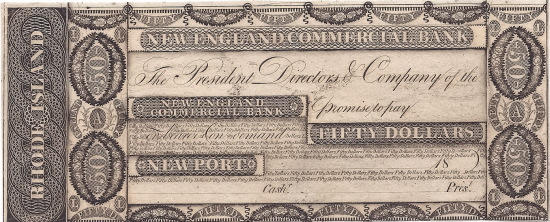 RHODE ISLAND
FIFTY FIFTY FIFTY
NEW ENGLAND COMMERCIAL BANK
50 50
The President Directors & Company of the
NEW ENGLAND
COMMERCIAL BANK
Promise to pay
A A
or bearer on demand
FIFTY DOLLARS
NEWPORT
18
50 50
Cash.r Pres.t
FIFTY FIFTY FIFTY